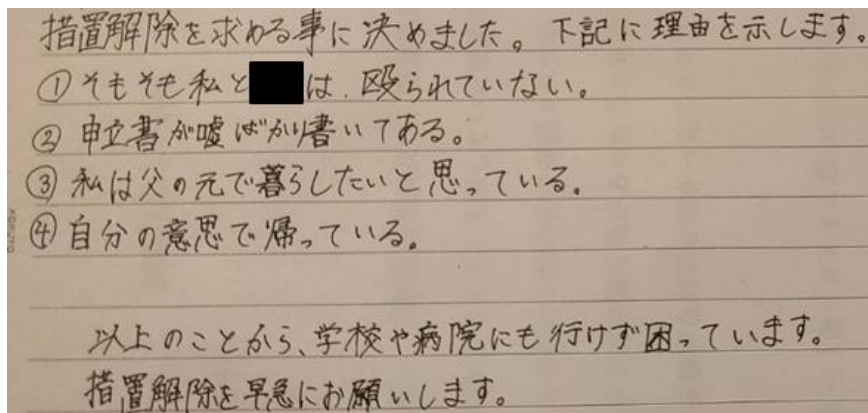 措置解除を求める事に決めました。下記に理由を示します。
①そもそも私と は、殴られていない。
②申立書が嘘ばかり書いてある。
③私は父の元で暮らしたいと思っている。
④自分の意思で帰っている。
以上のことから、学校や病院にも行けず困っています。
措置解除を早急にお願いします。